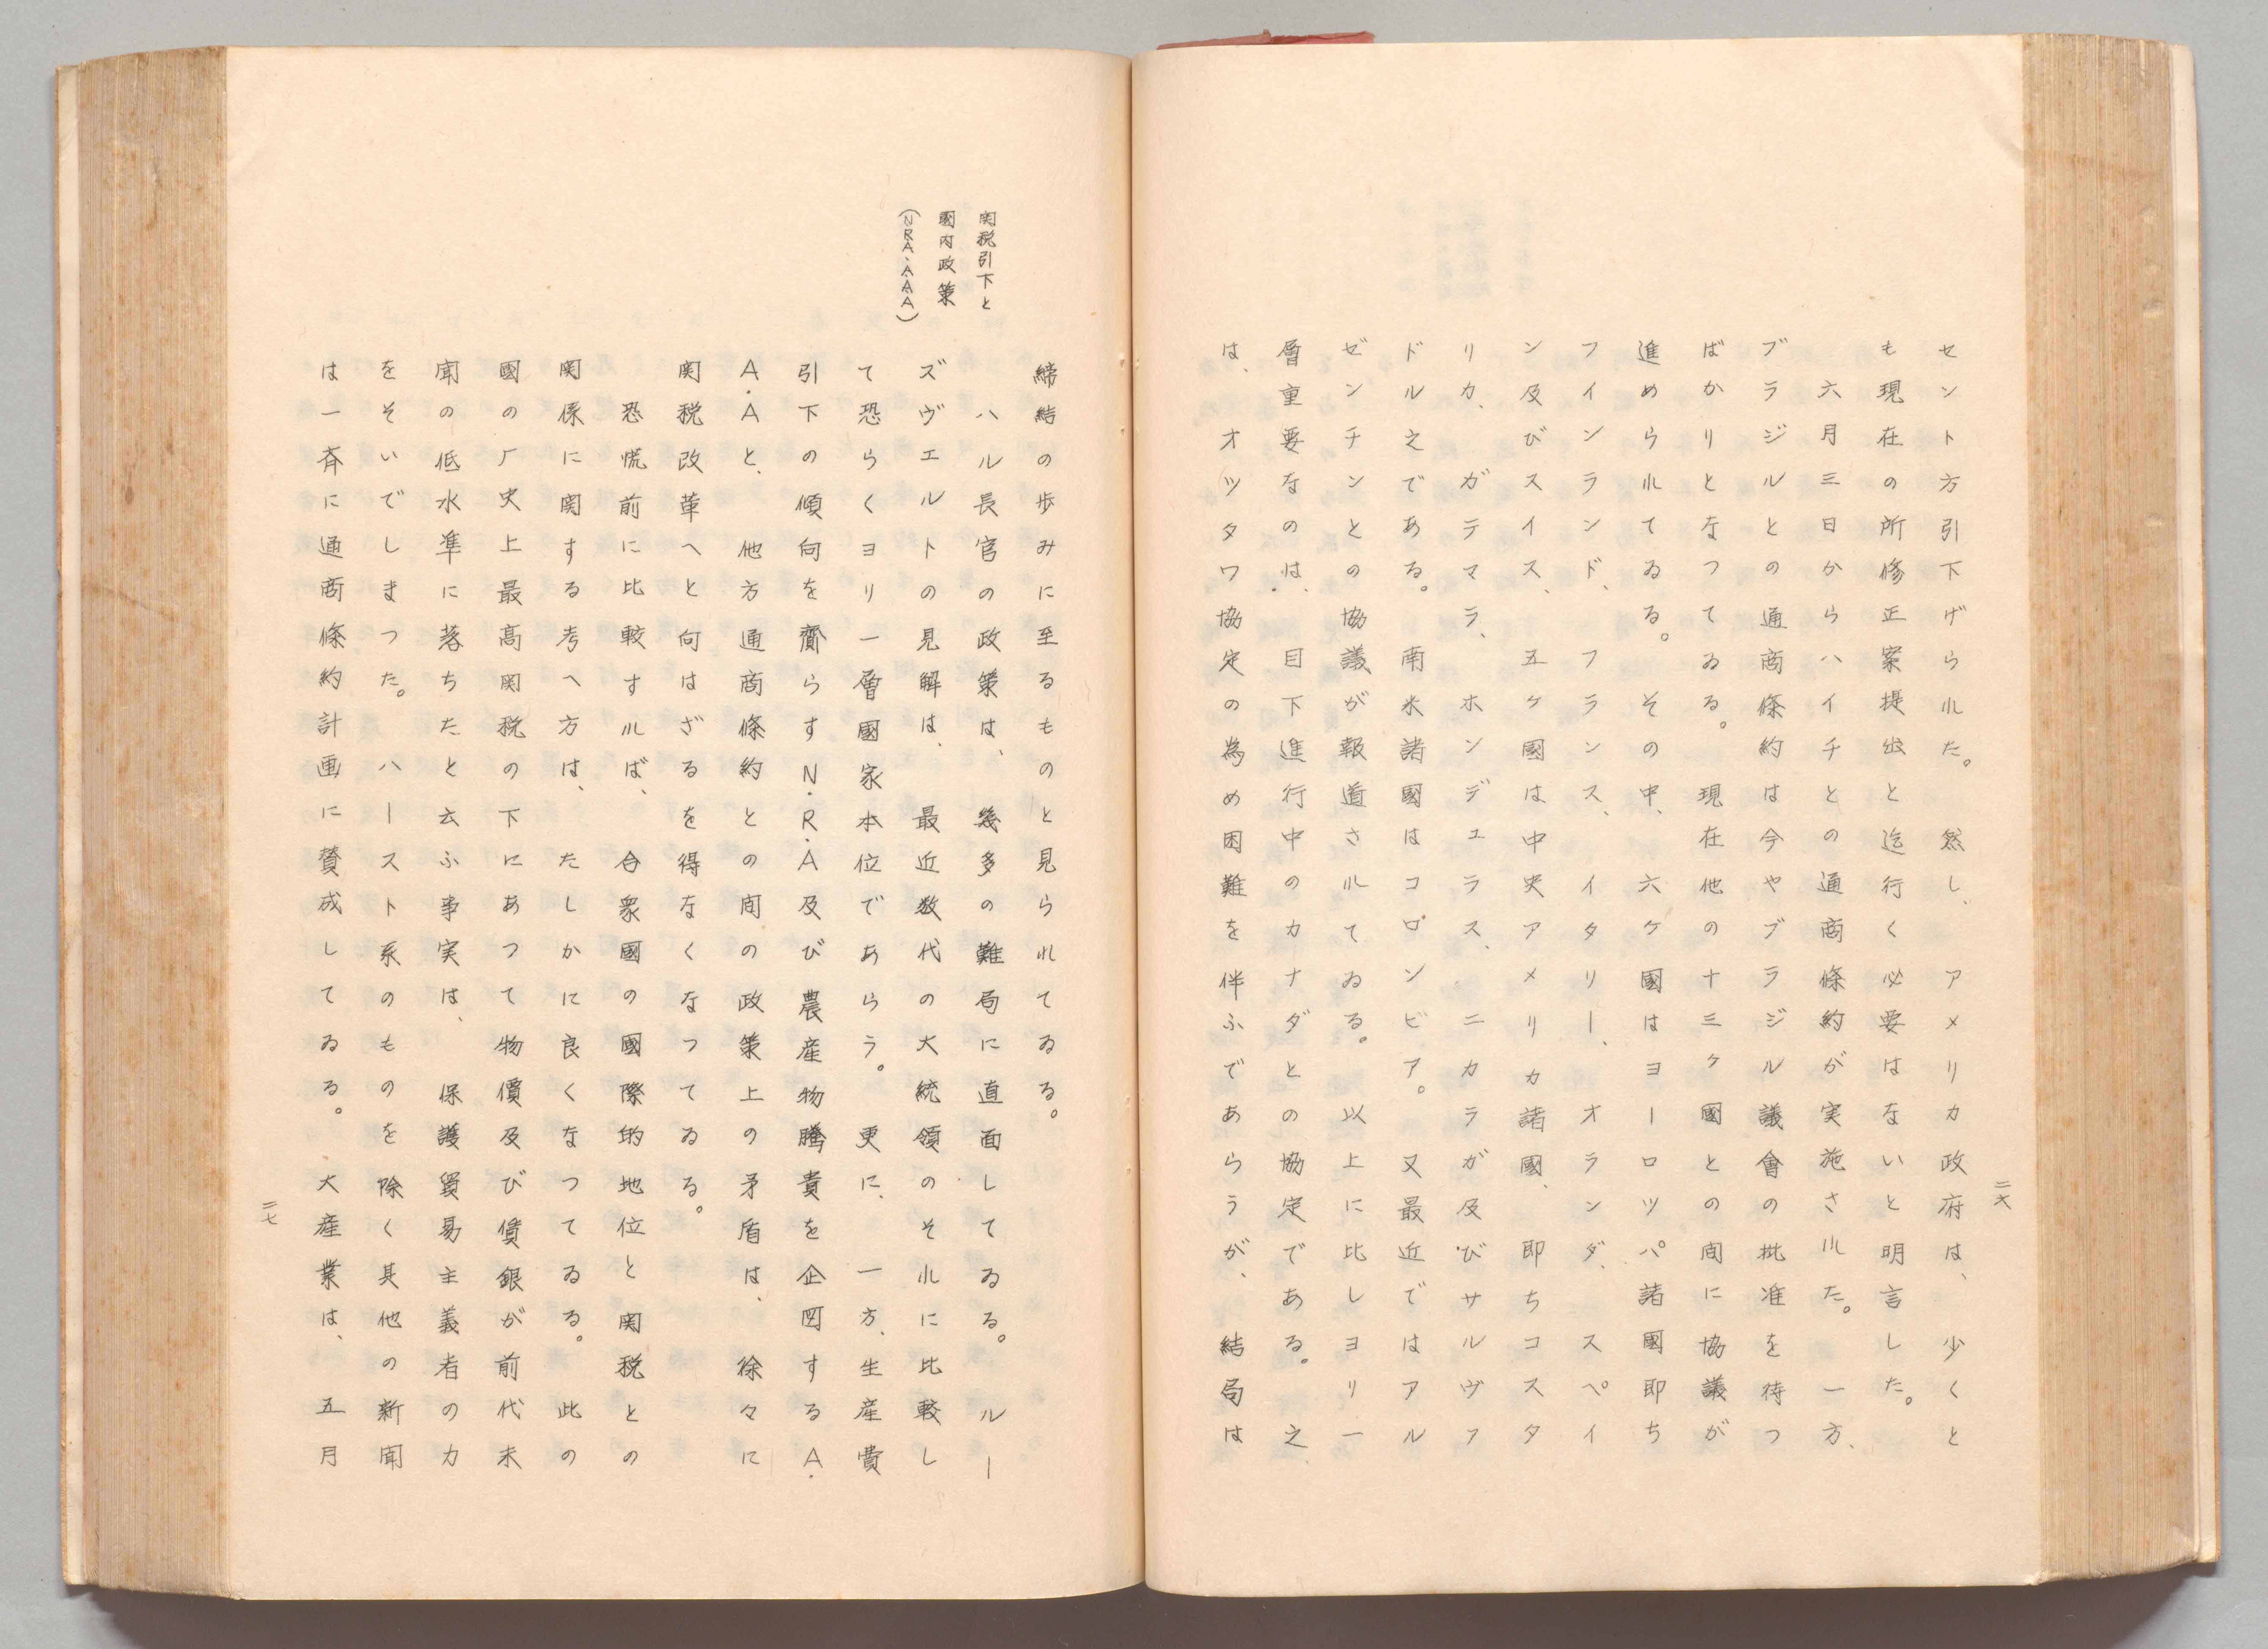 セント方引下げられた。然し、アメリカ政府は、少くと
も現在の所修正案提出と迄行く必要はないと明言した。
六月三日からハイチとの通商條約が実施された。一方、
ブラジルとの通商條約は今やブラジル議會の批准を待つ
ばかりとなつてゐる。現在他の十三ケ國との間に協議が
進められてゐる。その中、六ケ國はヨーロツパ諸國即ち
フインランド、フランス、イタリー、オランダ、スペイ
ン及びスイス、五ケ國は中央アメリカ諸國、即ちコスタ
リカ、ガテマラ、ホンデユラス、ニカラガ及びサルヴァ
ドル之である。南米諸國はコロンビア。又最近ではアル
ゼンチンとの協議が報道されてゐる。以上に比しヨリ一
層重要なのは、目下進行中のカナダとの協定である。之
は、オツタワ協定の為め困難を伴ふであらうが、結局は
二六
関税引下と
國内政策
(NRA・AAA)
締結の歩みに至るものと見られてゐる。
ハル長官の政策は、幾多の難局に直面してゐる。ルー
ズヴエルトの見解は、最近数代の大統領のそれに比較し
て恐らくヨリ一層國家本位であらう。更に、一方、生産費
引下の傾向を齎らすN・R・A及び農産物騰貴を企図するA・
A・Aと、他方通商條約との間の政策上の矛盾は、徐々に
関税改革へと向はざるを得なくなつてゐる。
恐慌前に比較すれば、合衆國の國際的地位と関税との
関係に関する考へ方は、たしかに良くなつてゐる。此の
國の厂史上最高関税の下にあつて物價及び賃銀が前代未
聞の低水準に落ちたと云ふ事実は、保護貿易主義者の力
をそいでしまつた。ハースト系のものを除く其他の新聞
は一斉に通商條約計画に賛成してゐる。大産業は、五月
二七